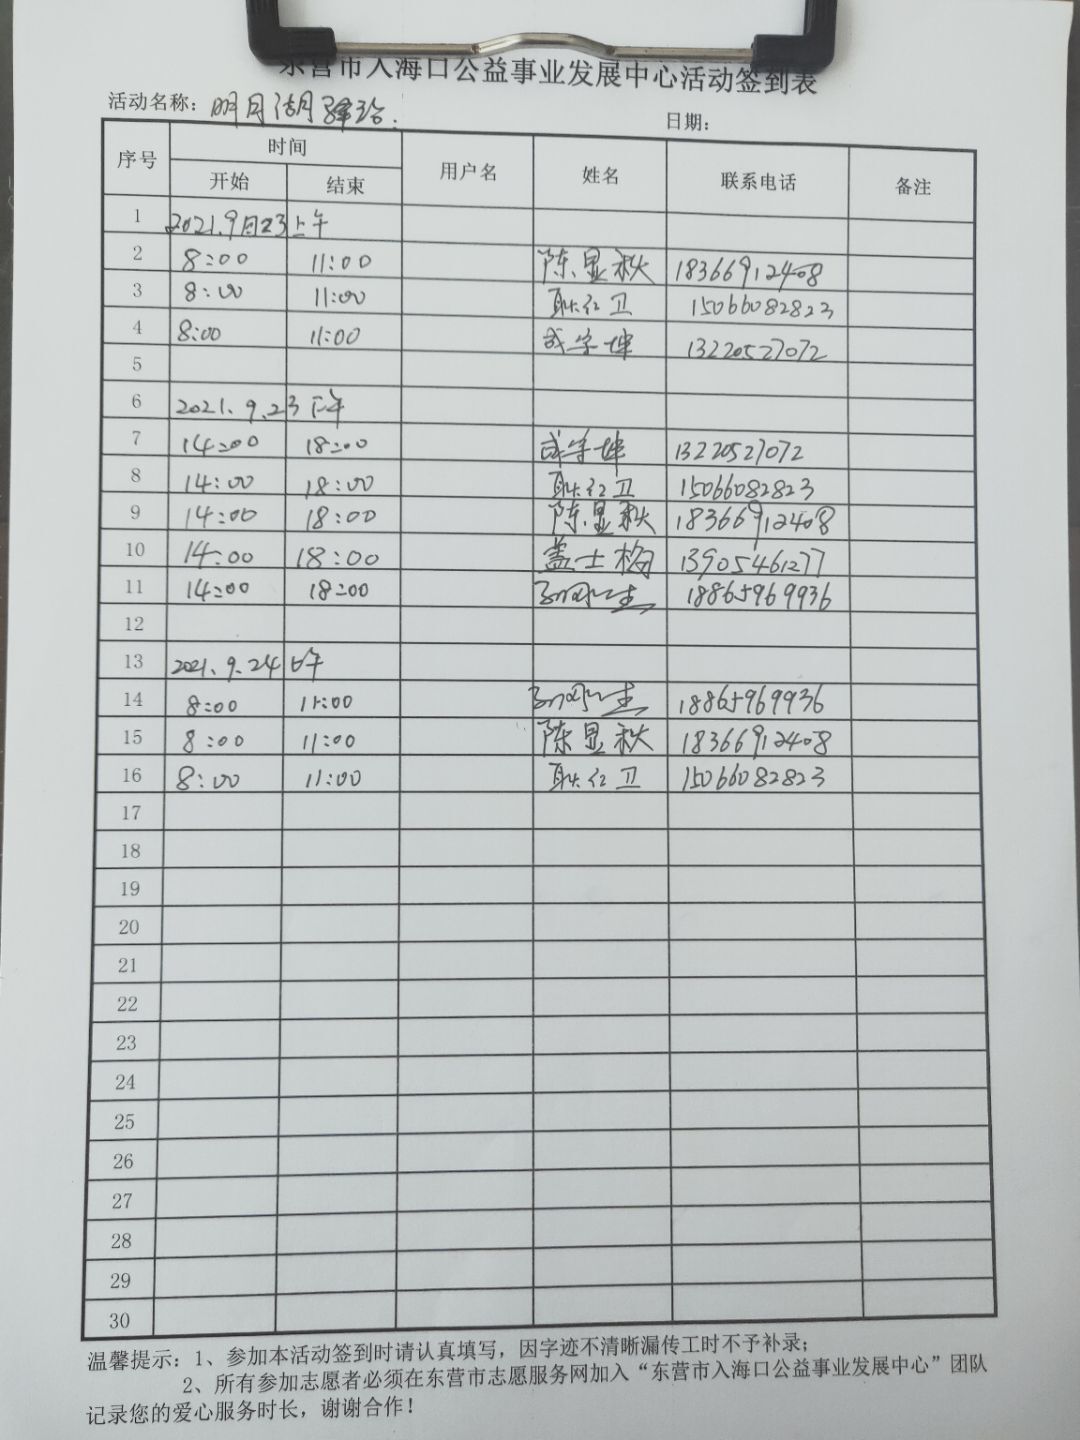 东营市入海口公益事业发展中心活动签到表
活动名称: 明月湖驿站. 日期:
序号 时间 用户名 姓名 联系电话 备注
开始 结束
1 2021.9月23上午
2 8:00 11:00 陈显秋 18366912408
3 8:00 11:00 耿红卫 15066082823
4 8:00 11:00 成学坤 13220527072
5
6 2021.9.23下午
7 14:00 18:00 成学坤 13220527072
8 14:00 18:00 耿红卫 15066082823
9 14:00 18:00 陈显秋 18366912408
10 14:00 18:00 盖士梅 13905461277
11 14:00 18:00 18865969936
12
13 2021.9.24上午
14 8:00 11:00 18865969936
15 8:00 11:00 陈显秋 18366912408
16 8:00 11:00 耿红卫 15066082823
17
18
19
20
21
22
23
24
25
26
27
28
29
30
温馨提示: 1、参加本活动签到时请认真填写，因字迹不清晰漏传工时不予补录;
2、所有参加志愿者必须在东营市志愿服务网加入“东营市入海口公益事业发展中心”团队
记录您的爱心服务时长，谢谢合作!